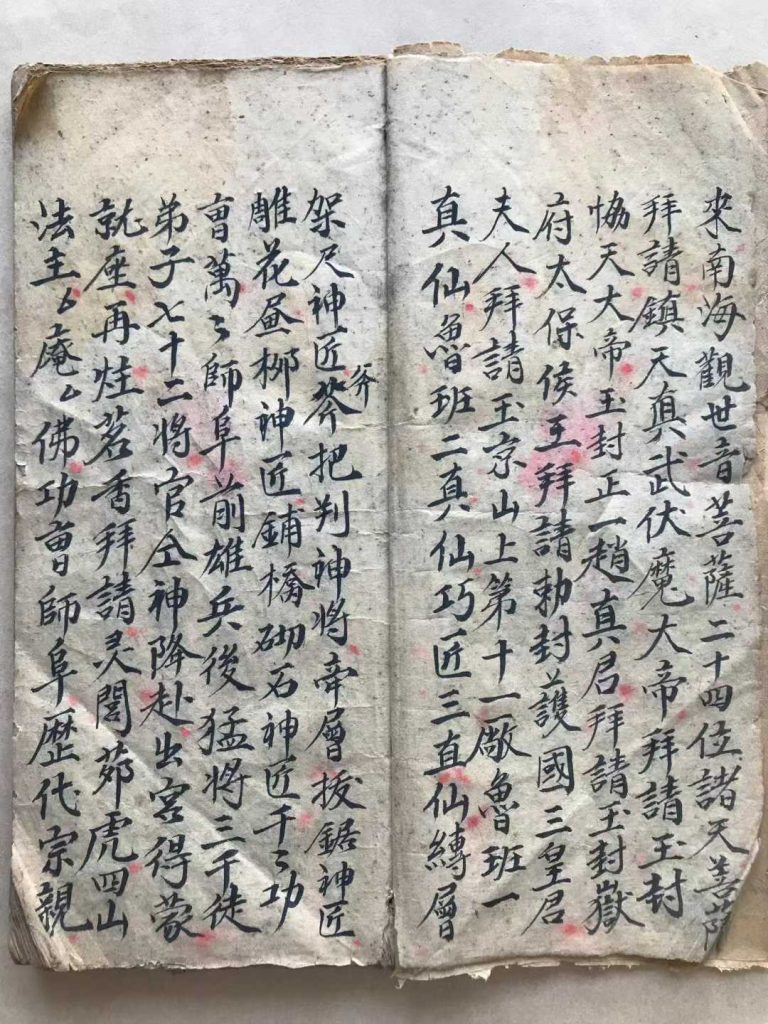 來南海觀世音菩薩二十四位諸天菩薩
拜請鎮天真武伏魔大帝拜請玉封
協天大帝玉封正一趙真君拜請玉封嶽
府太保侯王拜請勅封護國三皇君
夫人拜請玉京山上第十一殿魯班一
真仙魯班二真仙巧匠三真仙縛層
架尺神匠斧把判神將牽層拔鋸神匠
斧
雕花昼柳神匠鋪橋砌石神匠千〻功
曹萬〻師阜前雄兵後猛將三千徒
弟子七十二將官仝神降赴出宮得蒙
就座再炷茗香拜請灵閭茆虎四山
法主〻庵〻佛功曹師阜歷代宗親